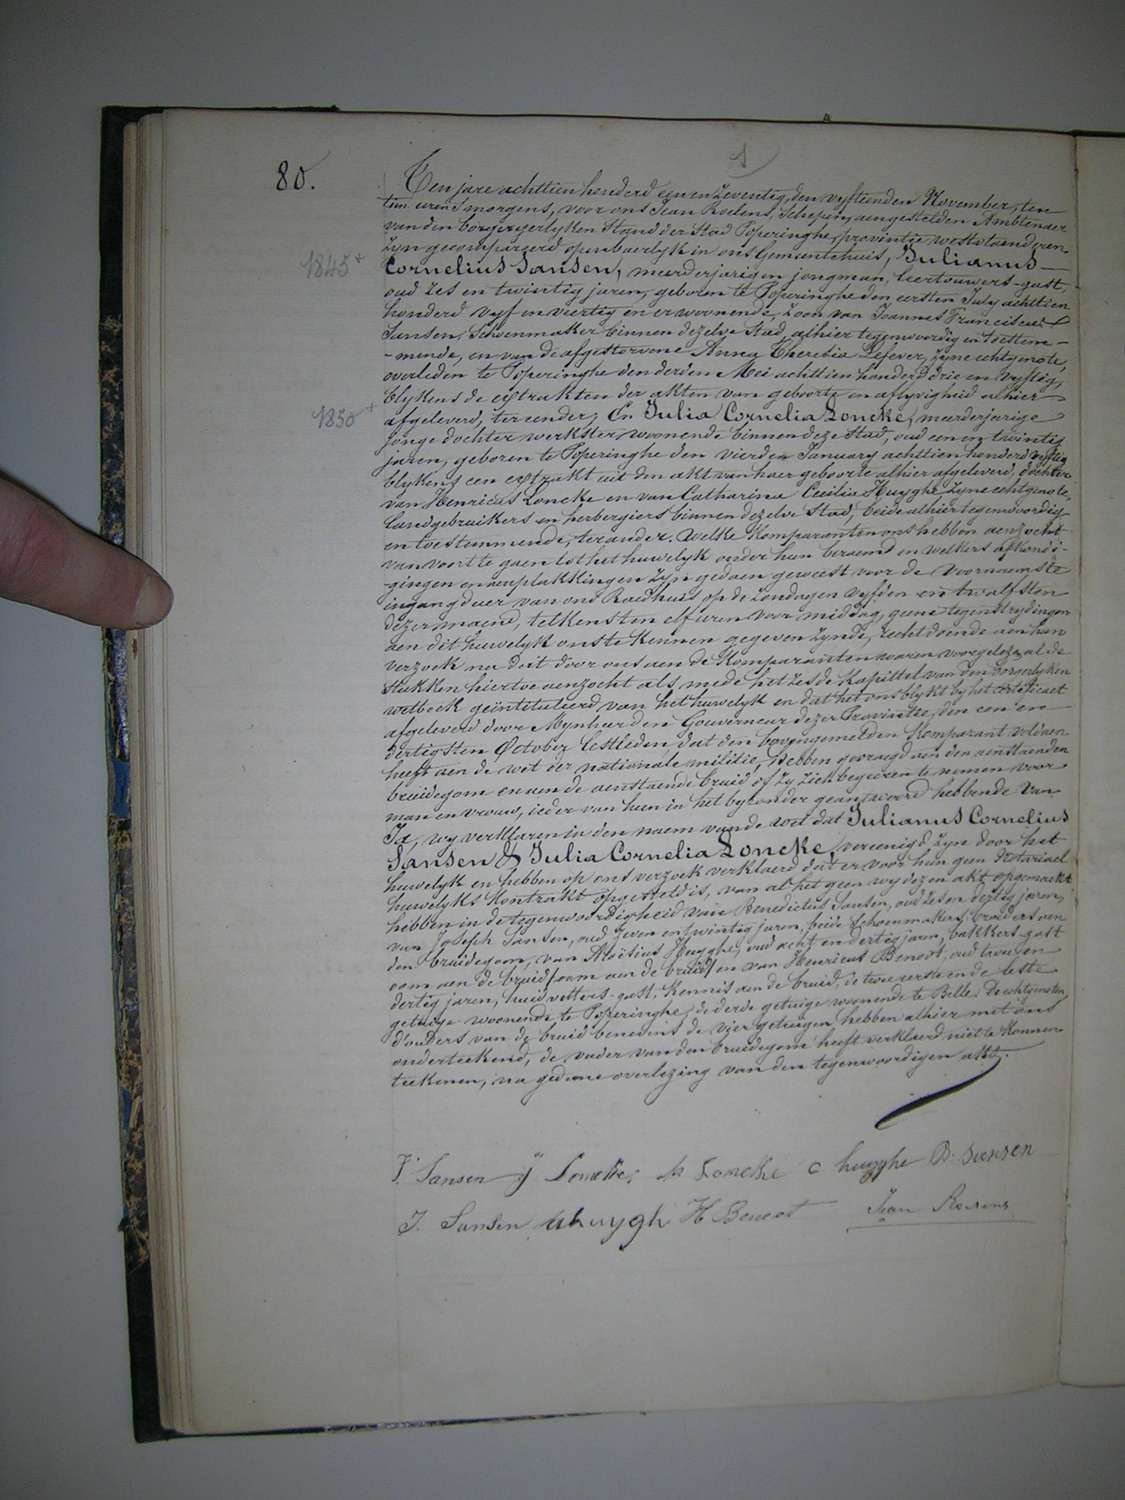 1
80.
Ten jare achttien honderd een en zeventig, den vyftienden November, ten
tien uren s morgens, voor ons Jean Roelens, Schepen, aengestelden Ambtenaer
van den borgerlyken Stand der Stad Poperinghe, provintie westvlaenderen
zyn gecompareerd openbaerlyk in ons Gemeentehuis, Julianus
1845+
Cornelius Sansen, meerderjarigen jongman, leertouwers-gast,
oud zes en twintig jaren, geboren te Poperinghe den eersten July achttien
honderd vyf en veertig en er woonende, zoon van Joannes Franciscus
Sansen, Schoenmaker binnen dezelve Stad, alhier tegenwoordig en toestem-
-mende, en van de afgestorvene Anna Theresia Lefever, zyne echtgenote,
overleden te Poperinghe den derden Mei achttien honderd drie en vyftig,
blykens de extrakten der akten van geboorte en aflyvigheid alhier
1850+
afgeleverd, ter eender; En Julia Cornelia Loncke, meerderjarige
jonge dochter werkster woonende binnen deze Stad, oud een en twintig
jaren, geboren te Poperinghe den vierden January achttien honderd vyftig
blykens een extrakt uit den akt van haer geboorte alhier afgeleverd, dochter
van Henricus Loncke en van Catharina Cecilia Huyghe zyne echtgenote,
landgebruikers en herbergiers binnen dezelve Stad, beide alhier tegenwoordig
en toestemmende, ter ander, welke Komparanten ons hebben aenzocht
van voort te gaen tot het huwelyk onder hun beraemd en welkers afkondi-
-gingen en aenplakkingen zyn gedaen geweest voor de voornaemste
ingangdeur van ons Raedhuis op de zondagen vyfden en twalfsten
dezer maend, telkens ten elf uren voor middag, geene tegenstrydingen
aen dit huwelyk ons te kennen gegeven zynde, recht doende aen hun
verzoek na dat door ons aen de Komparanten waren voorgelezen al de
stukken hiertoe aenzocht als mede het zesde Kapittel van den borgerlyken
wetboek geïntituleerd van het huwelyk en dat het ons blykt by het certificaet
afgeleverd door Mynheer den Gouverneur dezer Provintie, den een en
dertigsten October lestleden, dat den bovengemelden Komparant voldaen
heeft aen de wet der nationale militie, Hebben gevraegd aen den aenstaenden
bruidegom en aen de aenstaende bruid of zy zich begeeren te nemen voor
man en vrouw, ieder van hun in het byzonder geantwoord hebbende van
Ja, wy verklaren in den naem van de wet dat Julianus Cornelius
Sansen & Julia Cornelia Loncke, vereenigd zyn door het
huwelyk en hebben op ons verzoek verklaerd dat er voor hun geen Notariael
huwelyks Kontrakt opgesteld is, van al het geen wy dezen akt opgemaekt
hebben in de tegenwoordigheid van Benedictus Sansen, oud zes en dertig jaren,
van Joseph Sansen, oud zeven en twintig jaren, beide Schoenmakers, broeders aen
den bruidegom, van Aloïsius Huyghe, oud acht en dertig jaren, bakkers-gast
oom aen de bruid en van Henricus Benoot, oud twee en
dertig jaren, huidvetters-gast, Kennis aen de bruid, de twee eerste en de leste
getuige woonende te Poperinghe, de derde getuige woonende te Belle. De echtgenoten,
d'ouders van de bruid benevens de vier getuigen hebben alhier met ons
onderteekend, de vader van den bruidegom heeft verklaerd niet te konnen
teekenen, na gedaene overlezing van den tegenwoordigen akt.
J. Sansen J Loncke H Loncke C huyghe B. Sansen
J. Sansen ahuyghe H Benoot Jean Roelens